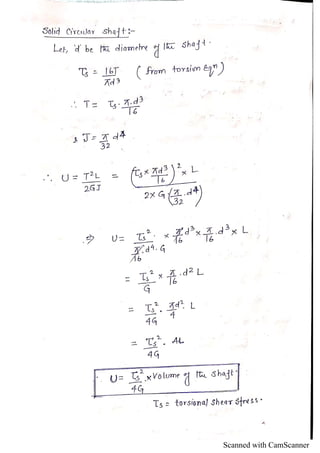 Solid Circular shaft:-
Let, 'd' be the diametre of the shaft.
τs = 16T / πd³ (from torsion Eqⁿ)
∴ T = τs . π.d³ / 16
& J = π/32 d⁴
∴ U = T²L / 2GJ = (τs × πd³/16)² × L / 2 × G (π/32 . d⁴)
⇒ U = τs² × π/16 d³ × π/16 . d³ × L / π/16 . d⁴. G
= τs²/G × π/16 . d² L
= τs²/4G . πd²/4 . L
= τs²/4G . AL
∴ U = τs²/4G × Volume of the shaft.
τs = torsional shear stress.
Scanned with CamScanner